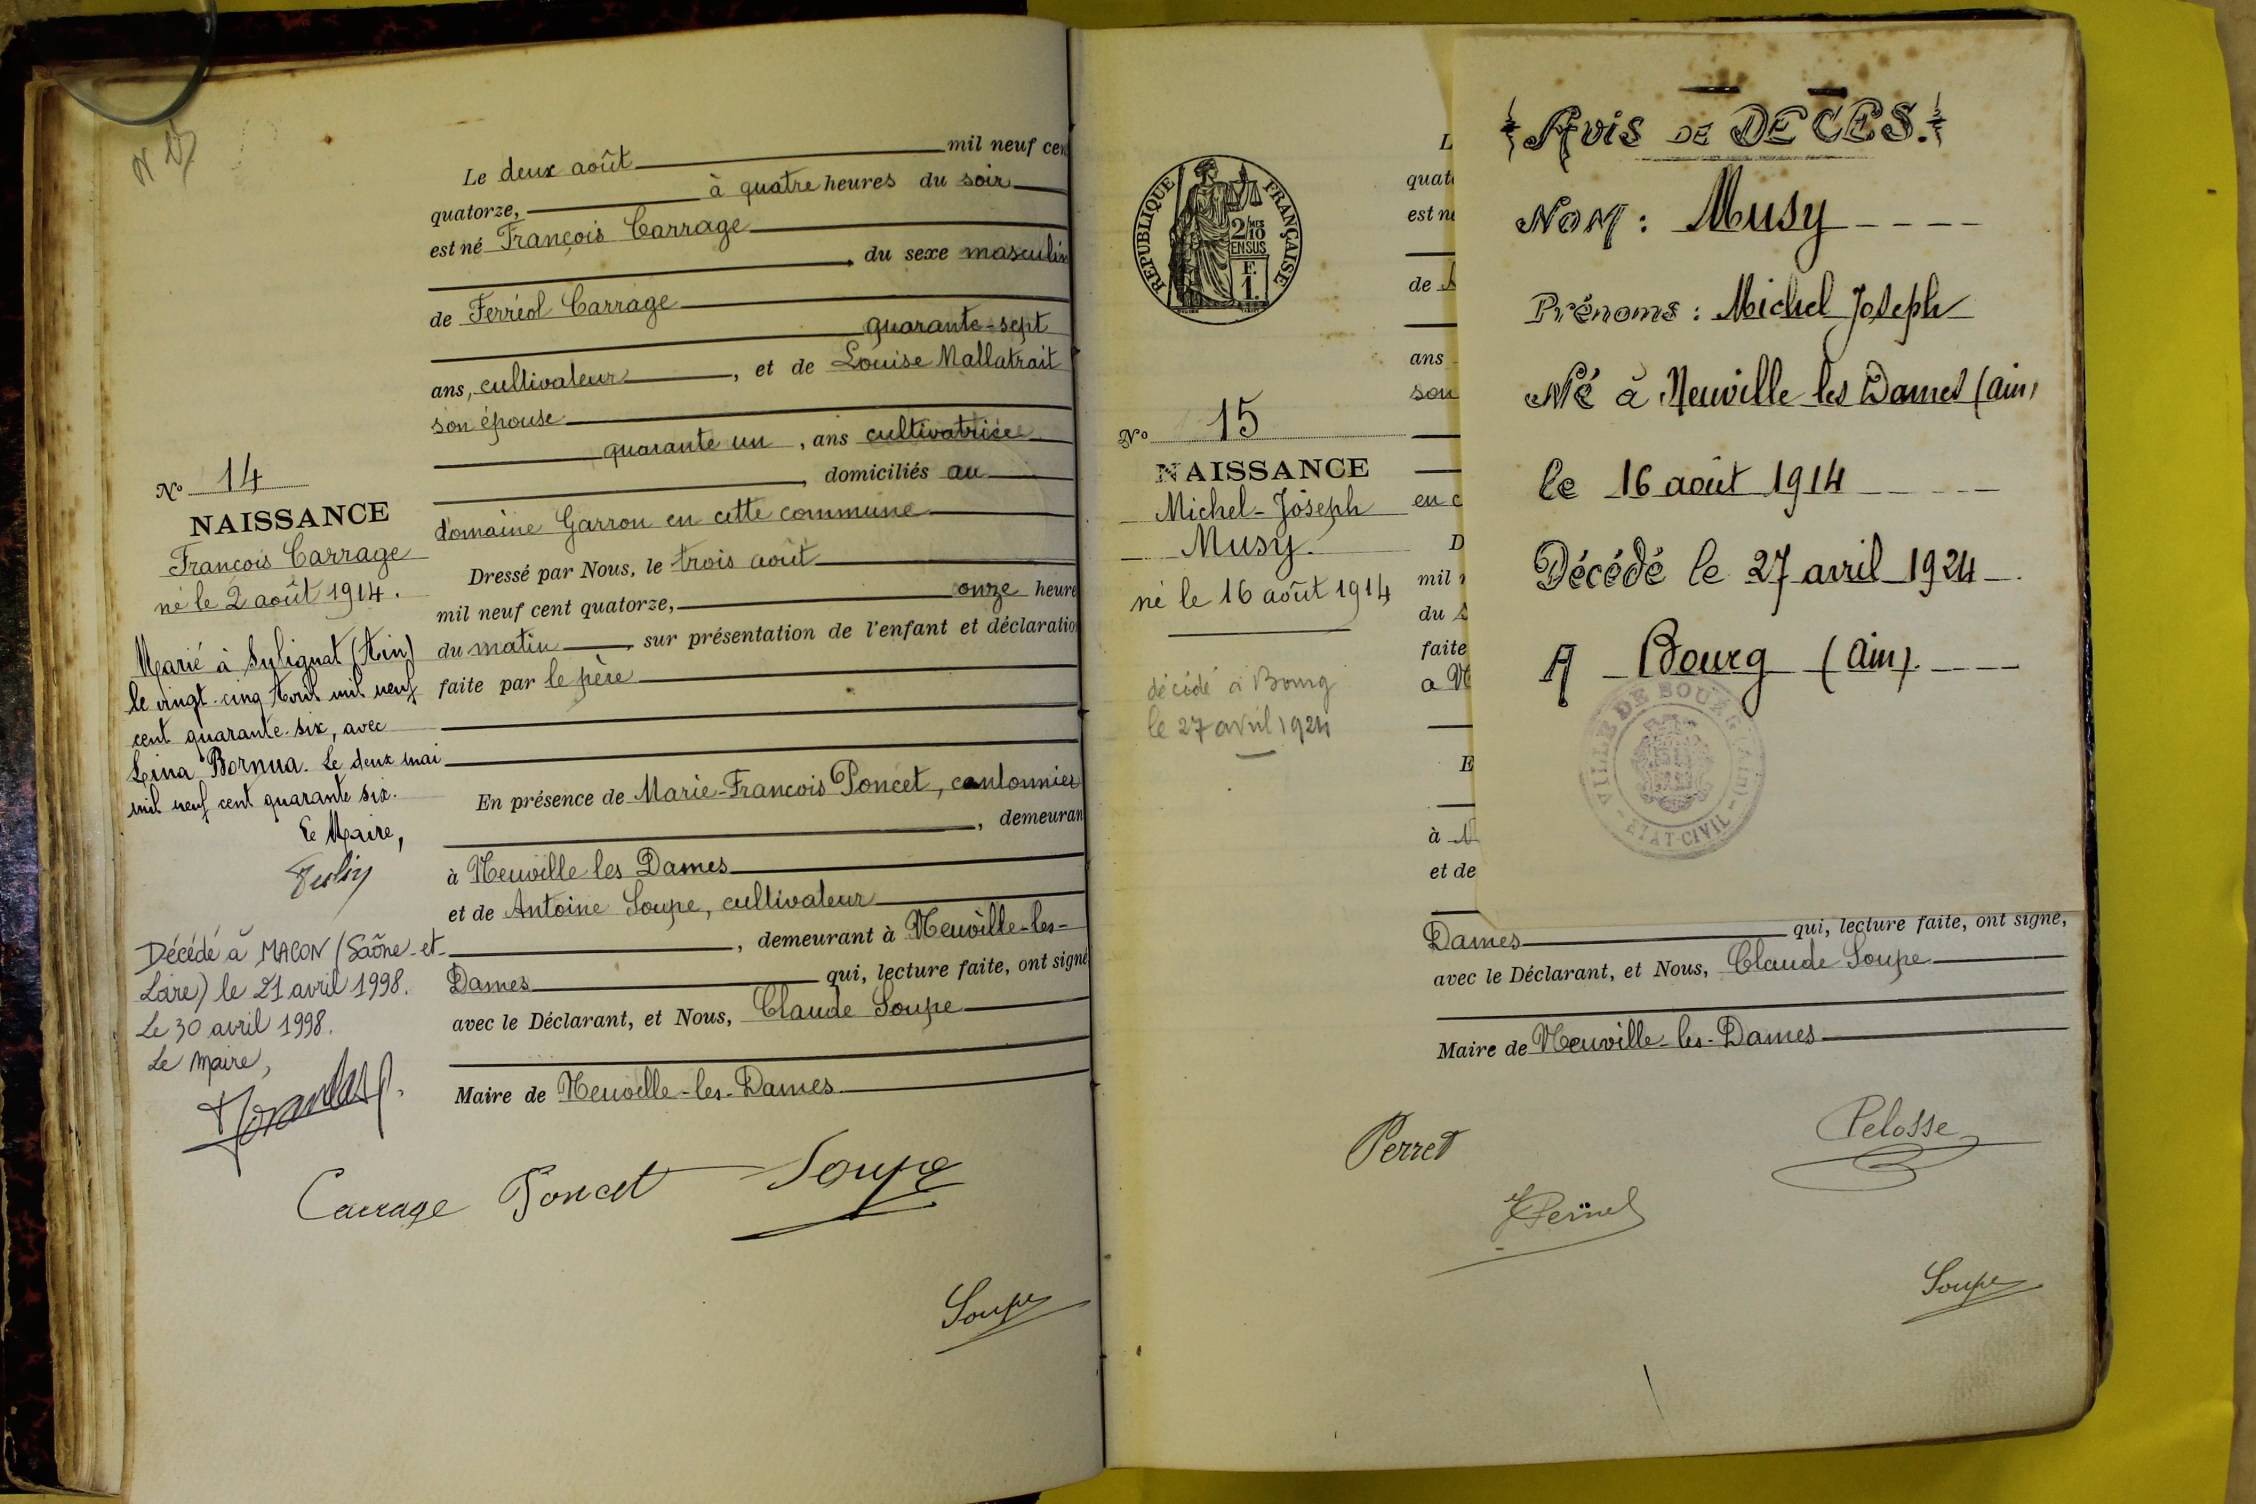 Le deux août mil neuf cen
quatorze, à quatre heures du soir
est né François Carrage
, du sexe masculin
de Ferréol Carrage
quarante-sept
ans, cultivateur, et de Louise Mallatrait
son épouse
quarante un, ans cultivatrice
, domiciliés au
domaine Garron en cette commune
Dressé par Nous, le trois août
mil neuf cent quatorze, onze heure
du matin, sur présentation de l'enfant et déclaratio
faite par le père
En présence de Marie-François Poncet, cantonnier
, demeuran
à Neuville les Dames
et de Antoine Soupe, cultivateur
, demeurant à Neuville-les-
Dames qui, lecture faite, ont signé
avec le Déclarant, et Nous, Claude Soupe
Maire de Neuville-les-Dames
Carrage Poncet Soupe
Soupe
No 14
NAISSANCE
François Carrage
né le 2 août 1914.
Marié à Sulignat (Ain)
le vingt-cinq Avril mil neuf
cent quarante-six, avec
Lina Bornua. Le deux mai
mil neuf cent quarante six.
Le Maire,
Décédé à MACON (Saône-et-
Loire) le 21 avril 1998.
Le 30 avril 1998.
Le Maire,
RÉPUBLIQUE FRANÇAISE
2/10 EN SUS
F. 1.
No 15
NAISSANCE
Michel-Joseph
Musy.
né le 16 août 1914
décédé à Bourg
le 27 avril 1924
L
quat
est né
de
ans
son
en c
D
mil
du
faite
a N
E
à N
et de
Avis DE DECES.
NOM : Musy
Prénoms : Michel Joseph
Né à Neuville les Dames (Ain)
le 16 août 1914
Décédé le 27 avril 1924
A Bourg (Ain)
VILLE DE BOURG (Ain)
ETAT-CIVIL
Dames qui, lecture faite, ont signé,
avec le Déclarant, et Nous, Claude Soupe
Maire de Neuville-les-Dames
Perret
Pelosse
Soupe